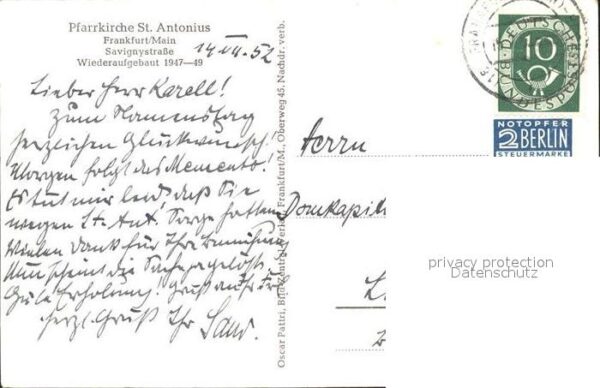 Pfarrkirche St. Antonius
Frankfurt/Main
Savignystraße
Wiederaufgebaut 1947—49
14 VII. 52
Lieber Herr Karell!
Zum Namenstag
herzlichen Glückwunsch!
Morgen folgt das Memento!
Es tut mir leid, daß Sie
wegen St. Ant. Sorge hatten
Vielen Dank für Ihre Bemühung
Nun scheint die Sache gelöst.
Gute Erholung! Gruß
herzl. Gruß Ihr
Oscar Pattri, Frankfurt/M., Oberweg 45, Nachdr. verb.
Herrn
Domkapit
DEUTSCHE BUNDESPOST
10
NOTOPFER
2 BERLIN
STEUERMARKE
privacy protection
Datenschutz